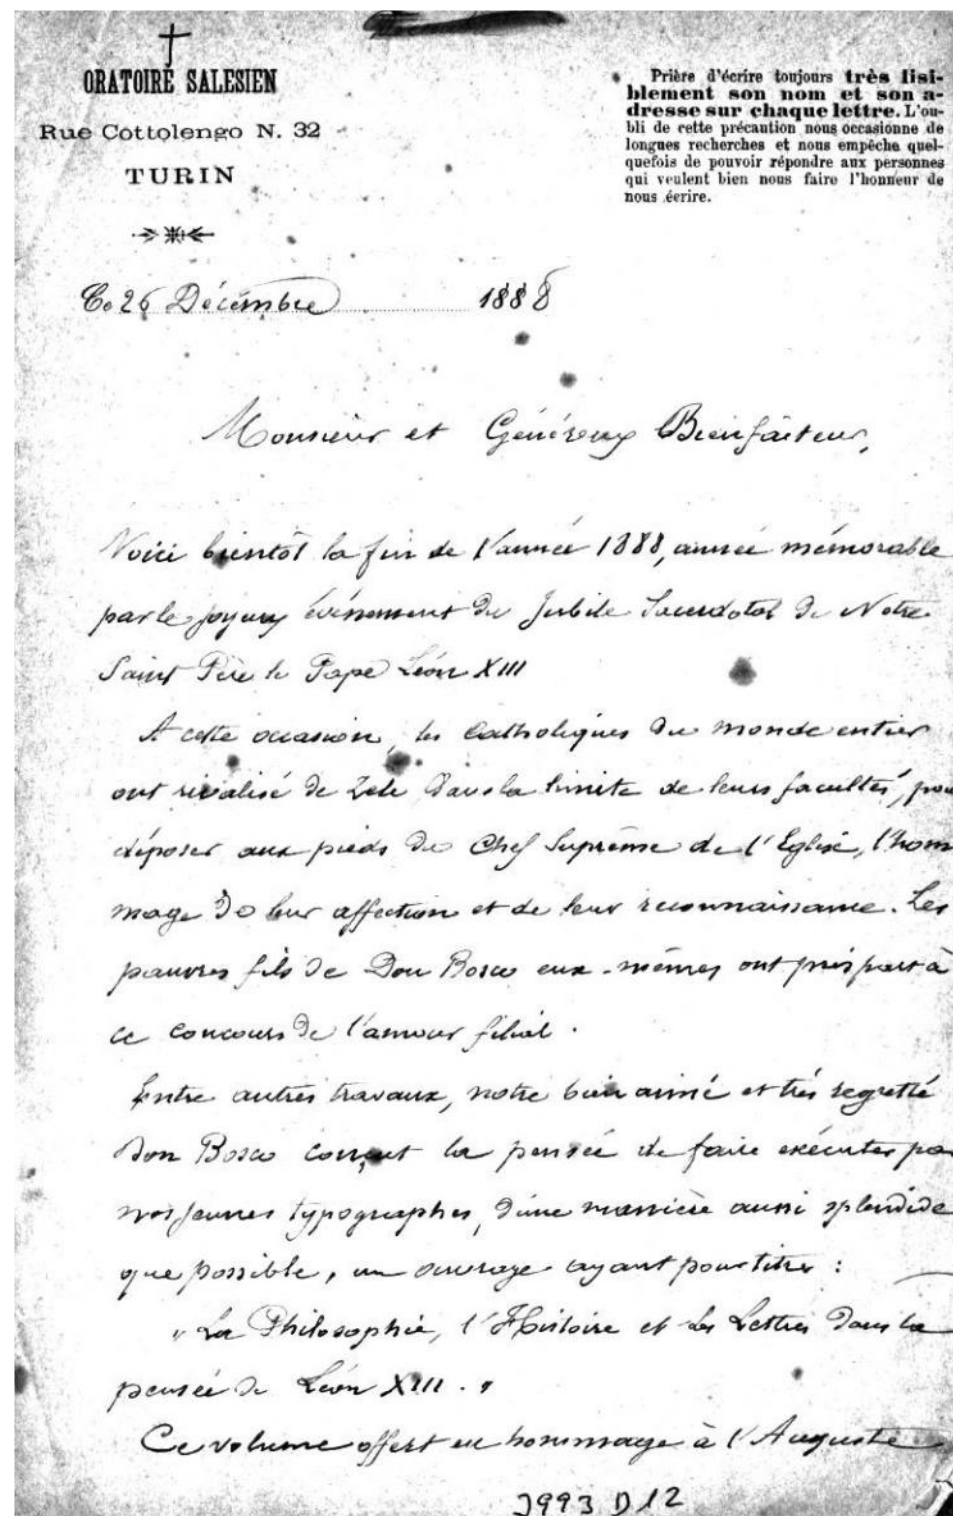 ORATOIRE SALESIEN
Rue Cottolengo N. 32
TURIN
Prière d'écrire toujours très lisi-
blement son nom et son a-
dresse sur chaque lettre. L'ou-
bli de cette précaution nous occasionne de
longues recherches et nous empêche quel-
quefois de pouvoir répondre aux personnes
qui veulent bien nous faire l'honneur de
nous écrire.
Ce 26 Décembre 1888
Monsieur et Généreux Bienfaiteur,
Voici bientôt la fin de l'année 1888, année mémorable
par le joyeux événement du Jubilé Sacerdotal de Notre
Saint Père le Pape Léon XIII
A cette occasion, les Catholiques du monde entier
ont rivalisé de Zèle dans la limite de leurs facultés, pour
déposer aux pieds du Chef Suprême de l'Eglise, l'hom
mage de leur affection et de leur reconnaissance. Les
pauvres fils de Don Bosco eux-mêmes ont pris part à
ce concours de l'amour filial.
Entre autres travaux, notre bien aimé et très regretté
Don Bosco conçut la pensée de faire exécuter pa
nos jeunes typographes, d'une manière aussi splendide
que possible, un ouvrage ayant pour titre :
" La Philosophie, l'Histoire et les Lettres dans la
pensée de Léon XIII. "
Ce volume offert en hommage à l'Auguste
J993 D12